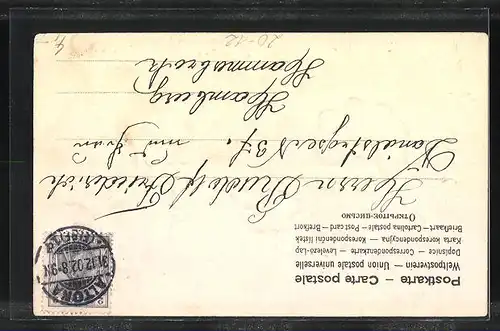 Postkarte – Carte postale
Weltpostverein — Union postale universelle
Dopisnice — Correspondenzkarte — Levelező-Lap
Karta korespondencyjna — Korespondenční lístek
Briefkaart — Cartolina postale — Post card — Brefkort
Открытое письмо
Herrn Rudolf Friederich
und Frau
Hamburg
Hammerbrook
ALTONA
31.12.02.8-9N
20-12